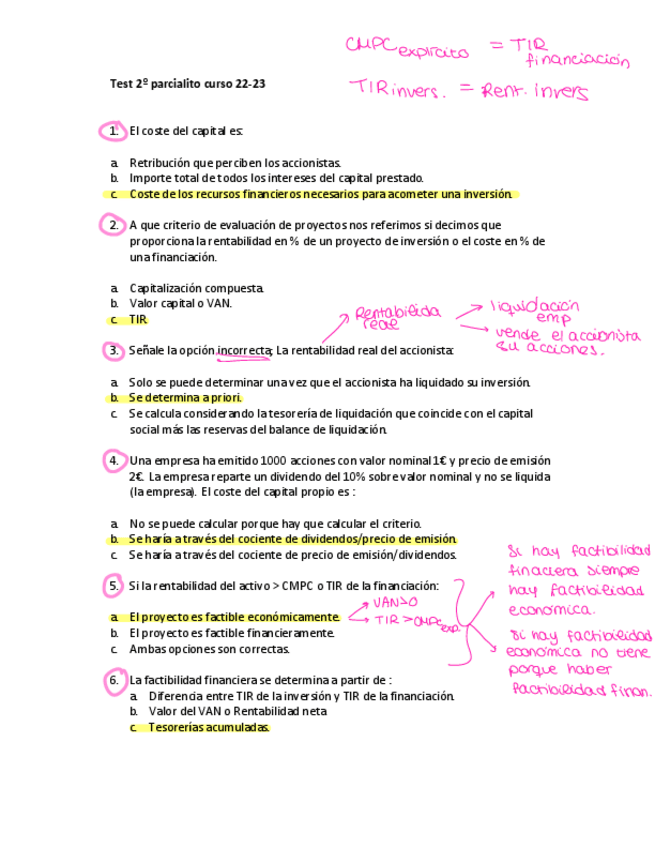 CMPC explícito = TIR financiación
TIR invers. = Rent. invers
Test 2º parcialito curso 22-23
1. El coste del capital es:
a. Retribución que perciben los accionistas.
b. Importe total de todos los intereses del capital prestado.
c. Coste de los recursos financieros necesarios para acometer una inversión.
2. A que criterio de evaluación de proyectos nos referimos si decimos que
proporciona la rentabilidad en % de un proyecto de inversión o el coste en % de
una financiación.
a. Capitalización compuesta.
b. Valor capital o VAN.
c. TIR
Rentabilida
real
liquidación
emp
vende el accionista
su acciones.
3. Señale la opción incorrecta; La rentabilidad real del accionista:
a. Solo se puede determinar una vez que el accionista ha liquidado su inversión.
b. Se determina a priori.
c. Se calcula considerando la tesorería de liquidación que coincide con el capital
social más las reservas del balance de liquidación.
4. Una empresa ha emitido 1000 acciones con valor nominal 1€ y precio de emisión
2€. La empresa reparte un dividendo del 10% sobre valor nominal y no se liquida
(la empresa). El coste del capital propio es :
a. No se puede calcular porque hay que calcular el criterio.
b. Se haría a través del cociente de dividendos/precio de emisión.
c. Se haría a través del cociente de precio de emisión/dividendos.
5. Si la rentabilidad del activo > CMPC o TIR de la financiación:
a. El proyecto es factible económicamente.
b. El proyecto es factible financieramente.
c. Ambas opciones son correctas.
VAN>0
TIR>CMPC exp.
Si hay factibilidad
finaciera siempre
hay factibilidad
económica.
Si hay factibilidad
económica no tiene
porque haber
factibilidad finan.
6. La factibilidad financiera se determina a partir de :
a. Diferencia entre TIR de la inversión y TIR de la financiación.
b. Valor del VAN o Rentabilidad neta
c. Tesorerías acumuladas.